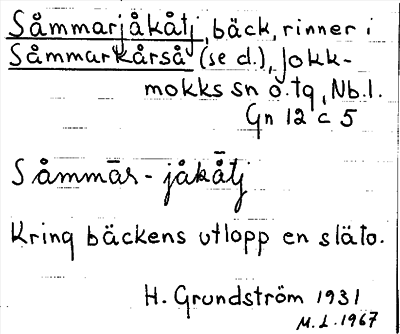 Såmmarjåkåtj, bäck, rinner i
Såmmarkårså (se d.), Jokk-
mokks sn o. tg, Nb. l.
Gn 12 c 5
Såmmār-jåkå̄tj
Kring bäckens utlopp en släto.
H. Grundström 1931
M.L. 1967